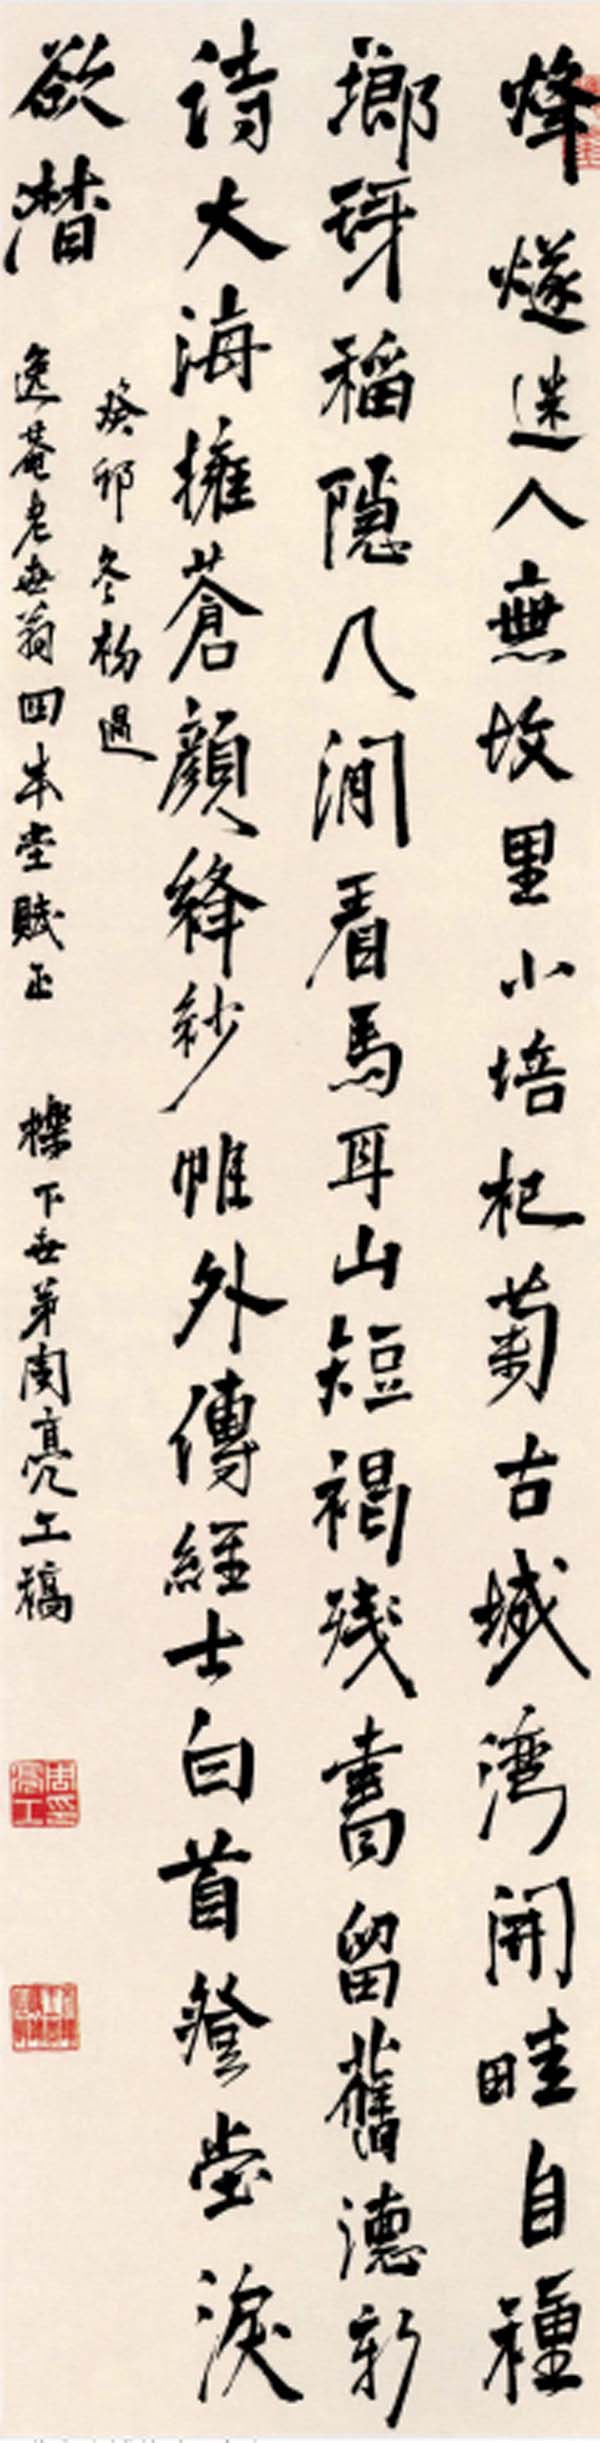 烽燧迷人無故里小培杞菊古城灣開畦自種
瑯琊稻隱几澗看馬耳山短褐殘書留舊德新
詩大海擁蒼顏絳紗帷外傳經士白首登堂淚
欲潸
癸卯冬杪過
逸菴老世翁四本堂賦正
櫟下世弟周亮工稿